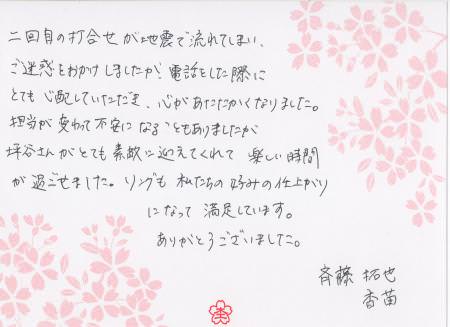 二回目の打合せが地震で流れてしまい、
ご迷惑をおかけしましたが、電話をした際に
とても心配していただき、心があたたかくなりました。
担当が変わって不安になることもありましたが
坪谷さんがとても素敵に迎えてくれて 楽しい時間
が過ごせました。リングも 私たちの好みの仕上がり
になって 満足しています。
ありがとうございました。
斉藤 拓也
香苗